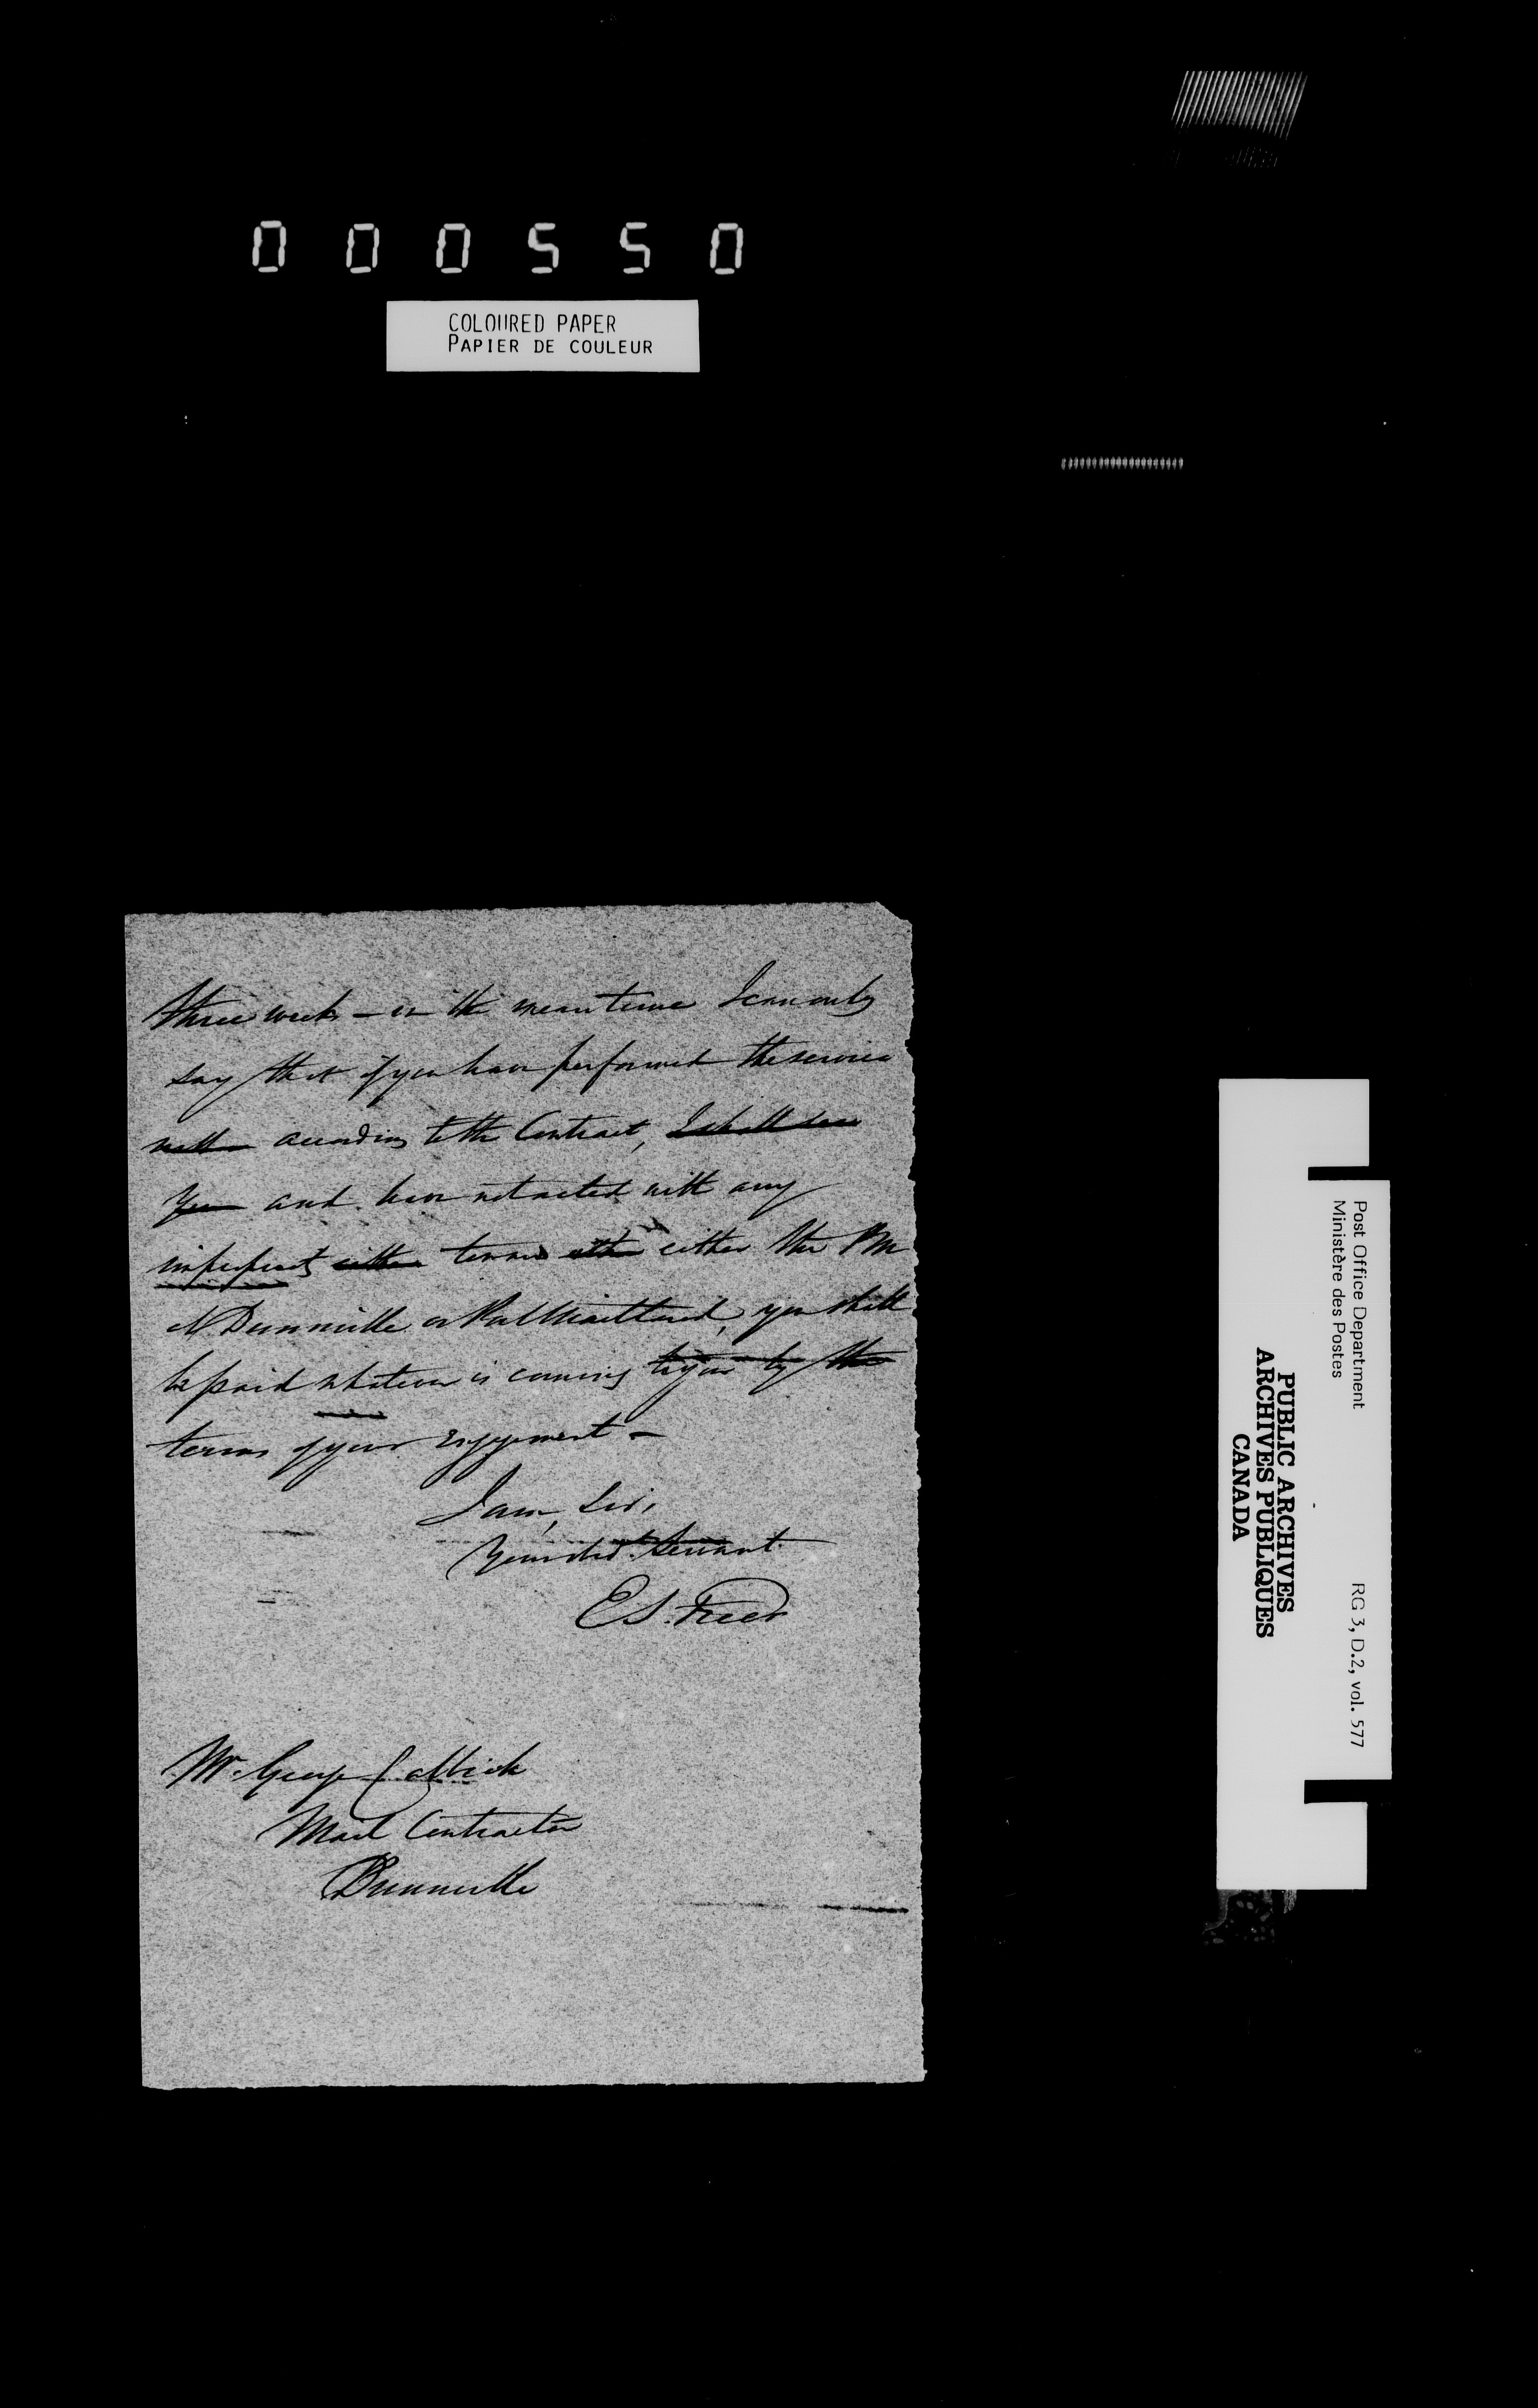 000550
COLOURED PAPER
PAPIER DE COULEUR
three weeks – in the mean time I can only
say that if you have performed the service
according to the Contract, I shall see
you and have not acted with any
towards either the PM
at Dunnville or Port Maitland, you shall
be paid whatever is coming to you by the
terms of your engagement –
I am, Sir,
Your obed.t Servant
E.S. Freer
Mr. George
Mail Contractor
Dunnville
Post Office Department
Ministère des Postes
RG 3, D.2, vol. 577
PUBLIC ARCHIVES
ARCHIVES PUBLIQUES
CANADA